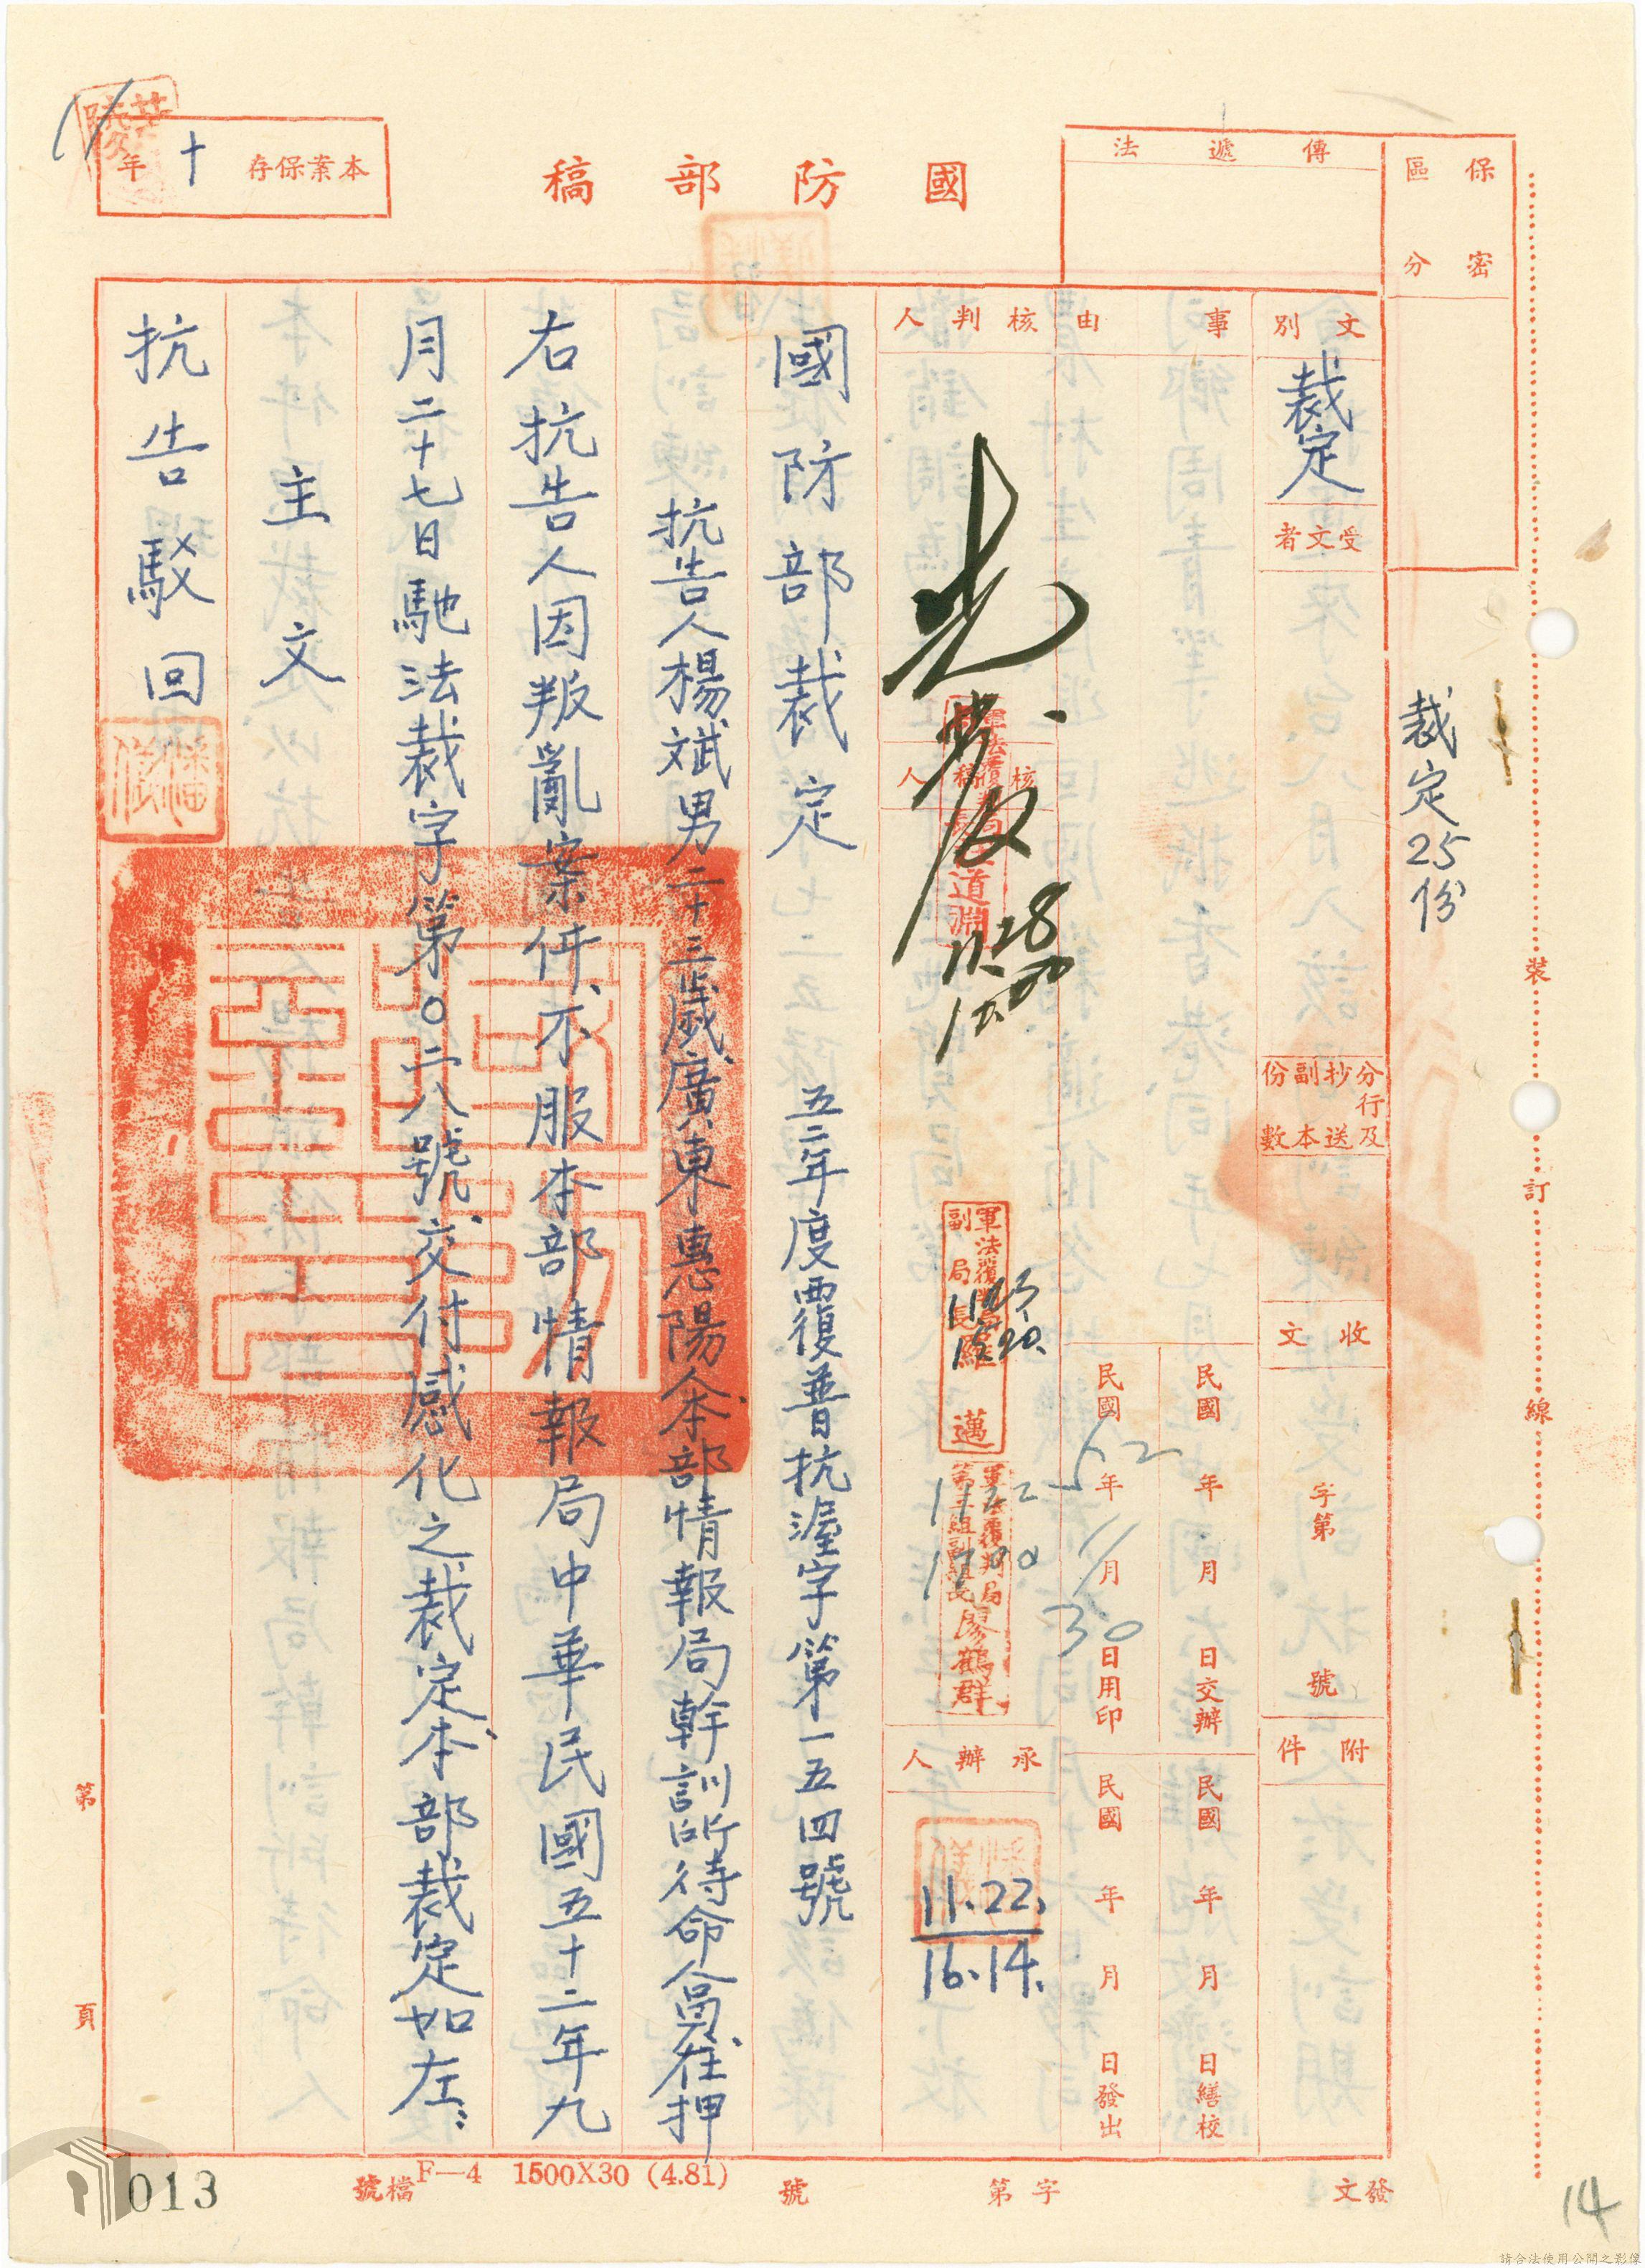 保密
區分
傳遞法
國防部稿
本案保存十年
文別
裁定
受文者
裁定25份
分行及抄送副本份數
收文
字第
號
附件
事由
民國 年 月 日交辦
民國 年 月 日繕校
民國52年11月30日用印
民國 年 月 日發出
核判人
核稿人
道淵
11.28
軍法覆判局
副局長羅 邁
軍法覆判局
第三組副組長廖鶴群
1700
承辦人
11.22.
16.14.
國防部裁定
五二年度覆普抗渥字第一五四號
抗告人楊斌男二十三歲廣東惠陽人本部情報局幹訓所待命人員在押
右抗告人因叛亂案件、不服本部情報局中華民國五十二年九
月二十七日馳法裁字第〇二八號、交付感化之裁定、本部裁定如左:
主文
抗告駁回
裝
訂
線
第
頁
發文
字第
號
F—4 1500X30 (4.81)
檔號
013
14
請合法使用公開之影像